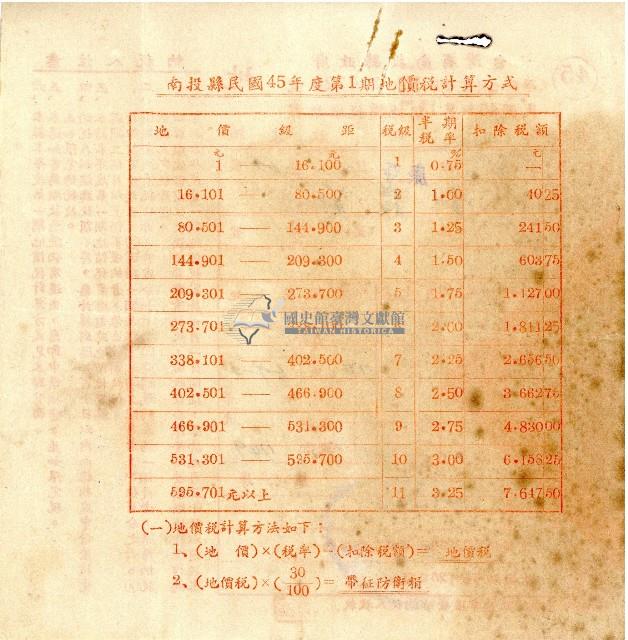 南投縣民國45年度第1期地價稅計算方式
地價級距 稅級 半期稅率 扣除稅額
元 元 % 元
1 — 16.100 1 0.75 —
16.101 — 80.500 2 1.00 40 25
80.501 — 144.900 3 1.25 241 50
144.901 — 209.300 4 1.50 603 75
209.301 — 273.700 5 1.75 1.127 00
273.701 2.00 1.811 25
338.101 — 402.500 7 2.25 2.656 50
402.501 — 466.900 8 2.50 3.662 75
466.901 — 531.300 9 2.75 4.830 00
531.301 — 595.700 10 3.00 6.158 25
595.701元以上 11 3.25 7.647 50
國史館臺灣文獻館
TAIWAN HISTORICA
(一)地價稅計算方法如下:
1、(地 價)×(稅率)-(扣除稅額)= 地價稅
2、(地價稅)×(30/100)= 帶征防衛捐